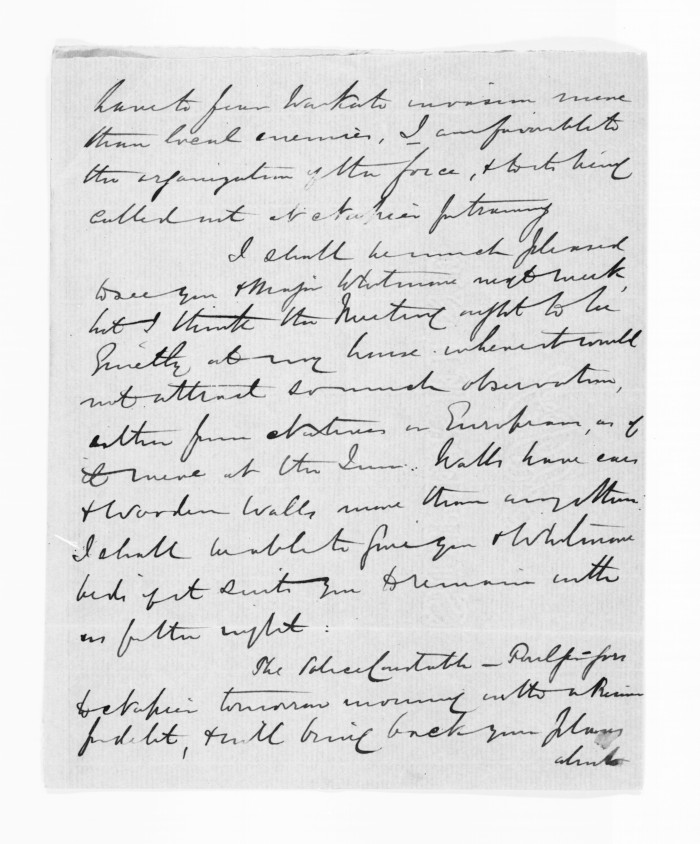 have to fear Waikato invasion more
than local enemies, I am favorable to
the organization of the force, & to its being
called out at Napier for training
I shall be much pleased
to see you & Major Whitmore next week,
but I think the Meeting ought to be
quietly at my house where it would
not attract so much observation,
either from Natives or Europeans, as if
it were at the Inn. Walls have ears
& Wooden Walls more than any other.
I shall be able to give you & Whitmore
beds if it suits you to remain with
us for the night.
The Police Constable – goes
to Napier tomorrow morning with a
for debt, & will bring back your